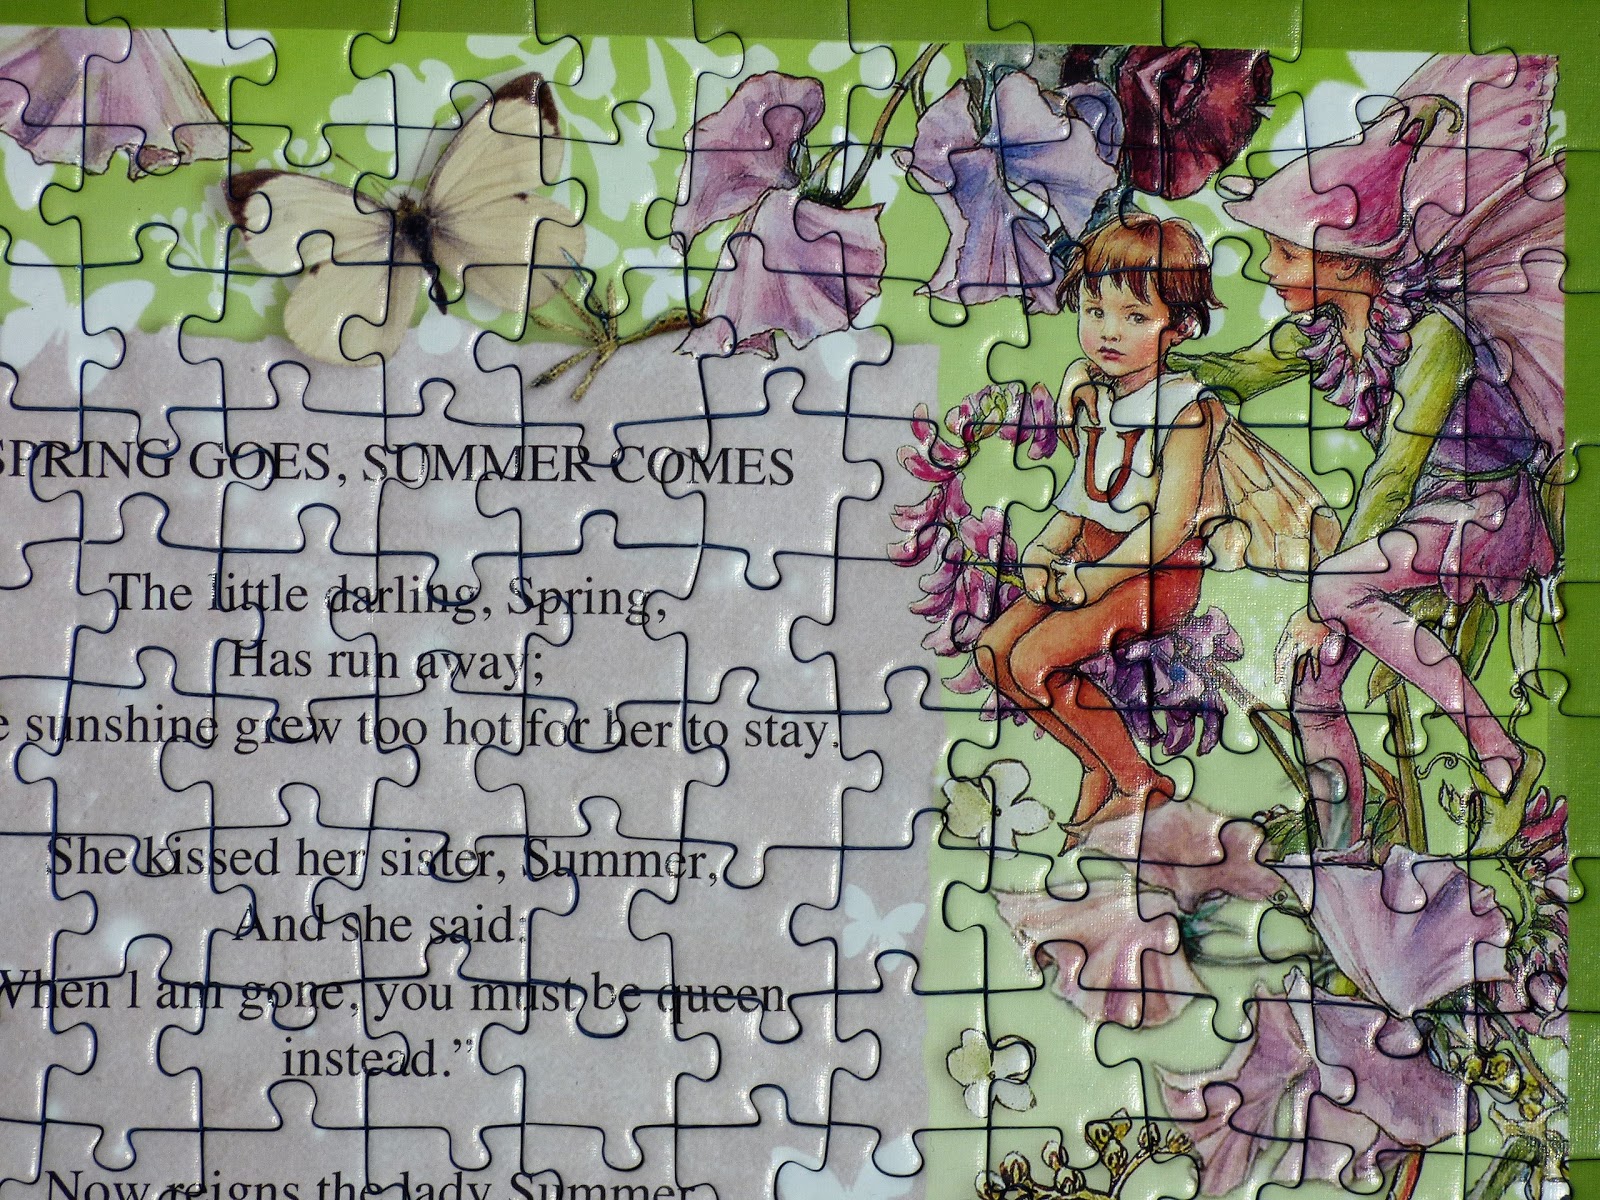 SPRING GOES, SUMMER COMES
The little darling, Spring,
Has run away;
e sunshine grew too hot for her to stay.
She kissed her sister, Summer,
And she said:
When I am gone, you must be queen
instead.”
Now reigns the lady Summer
U